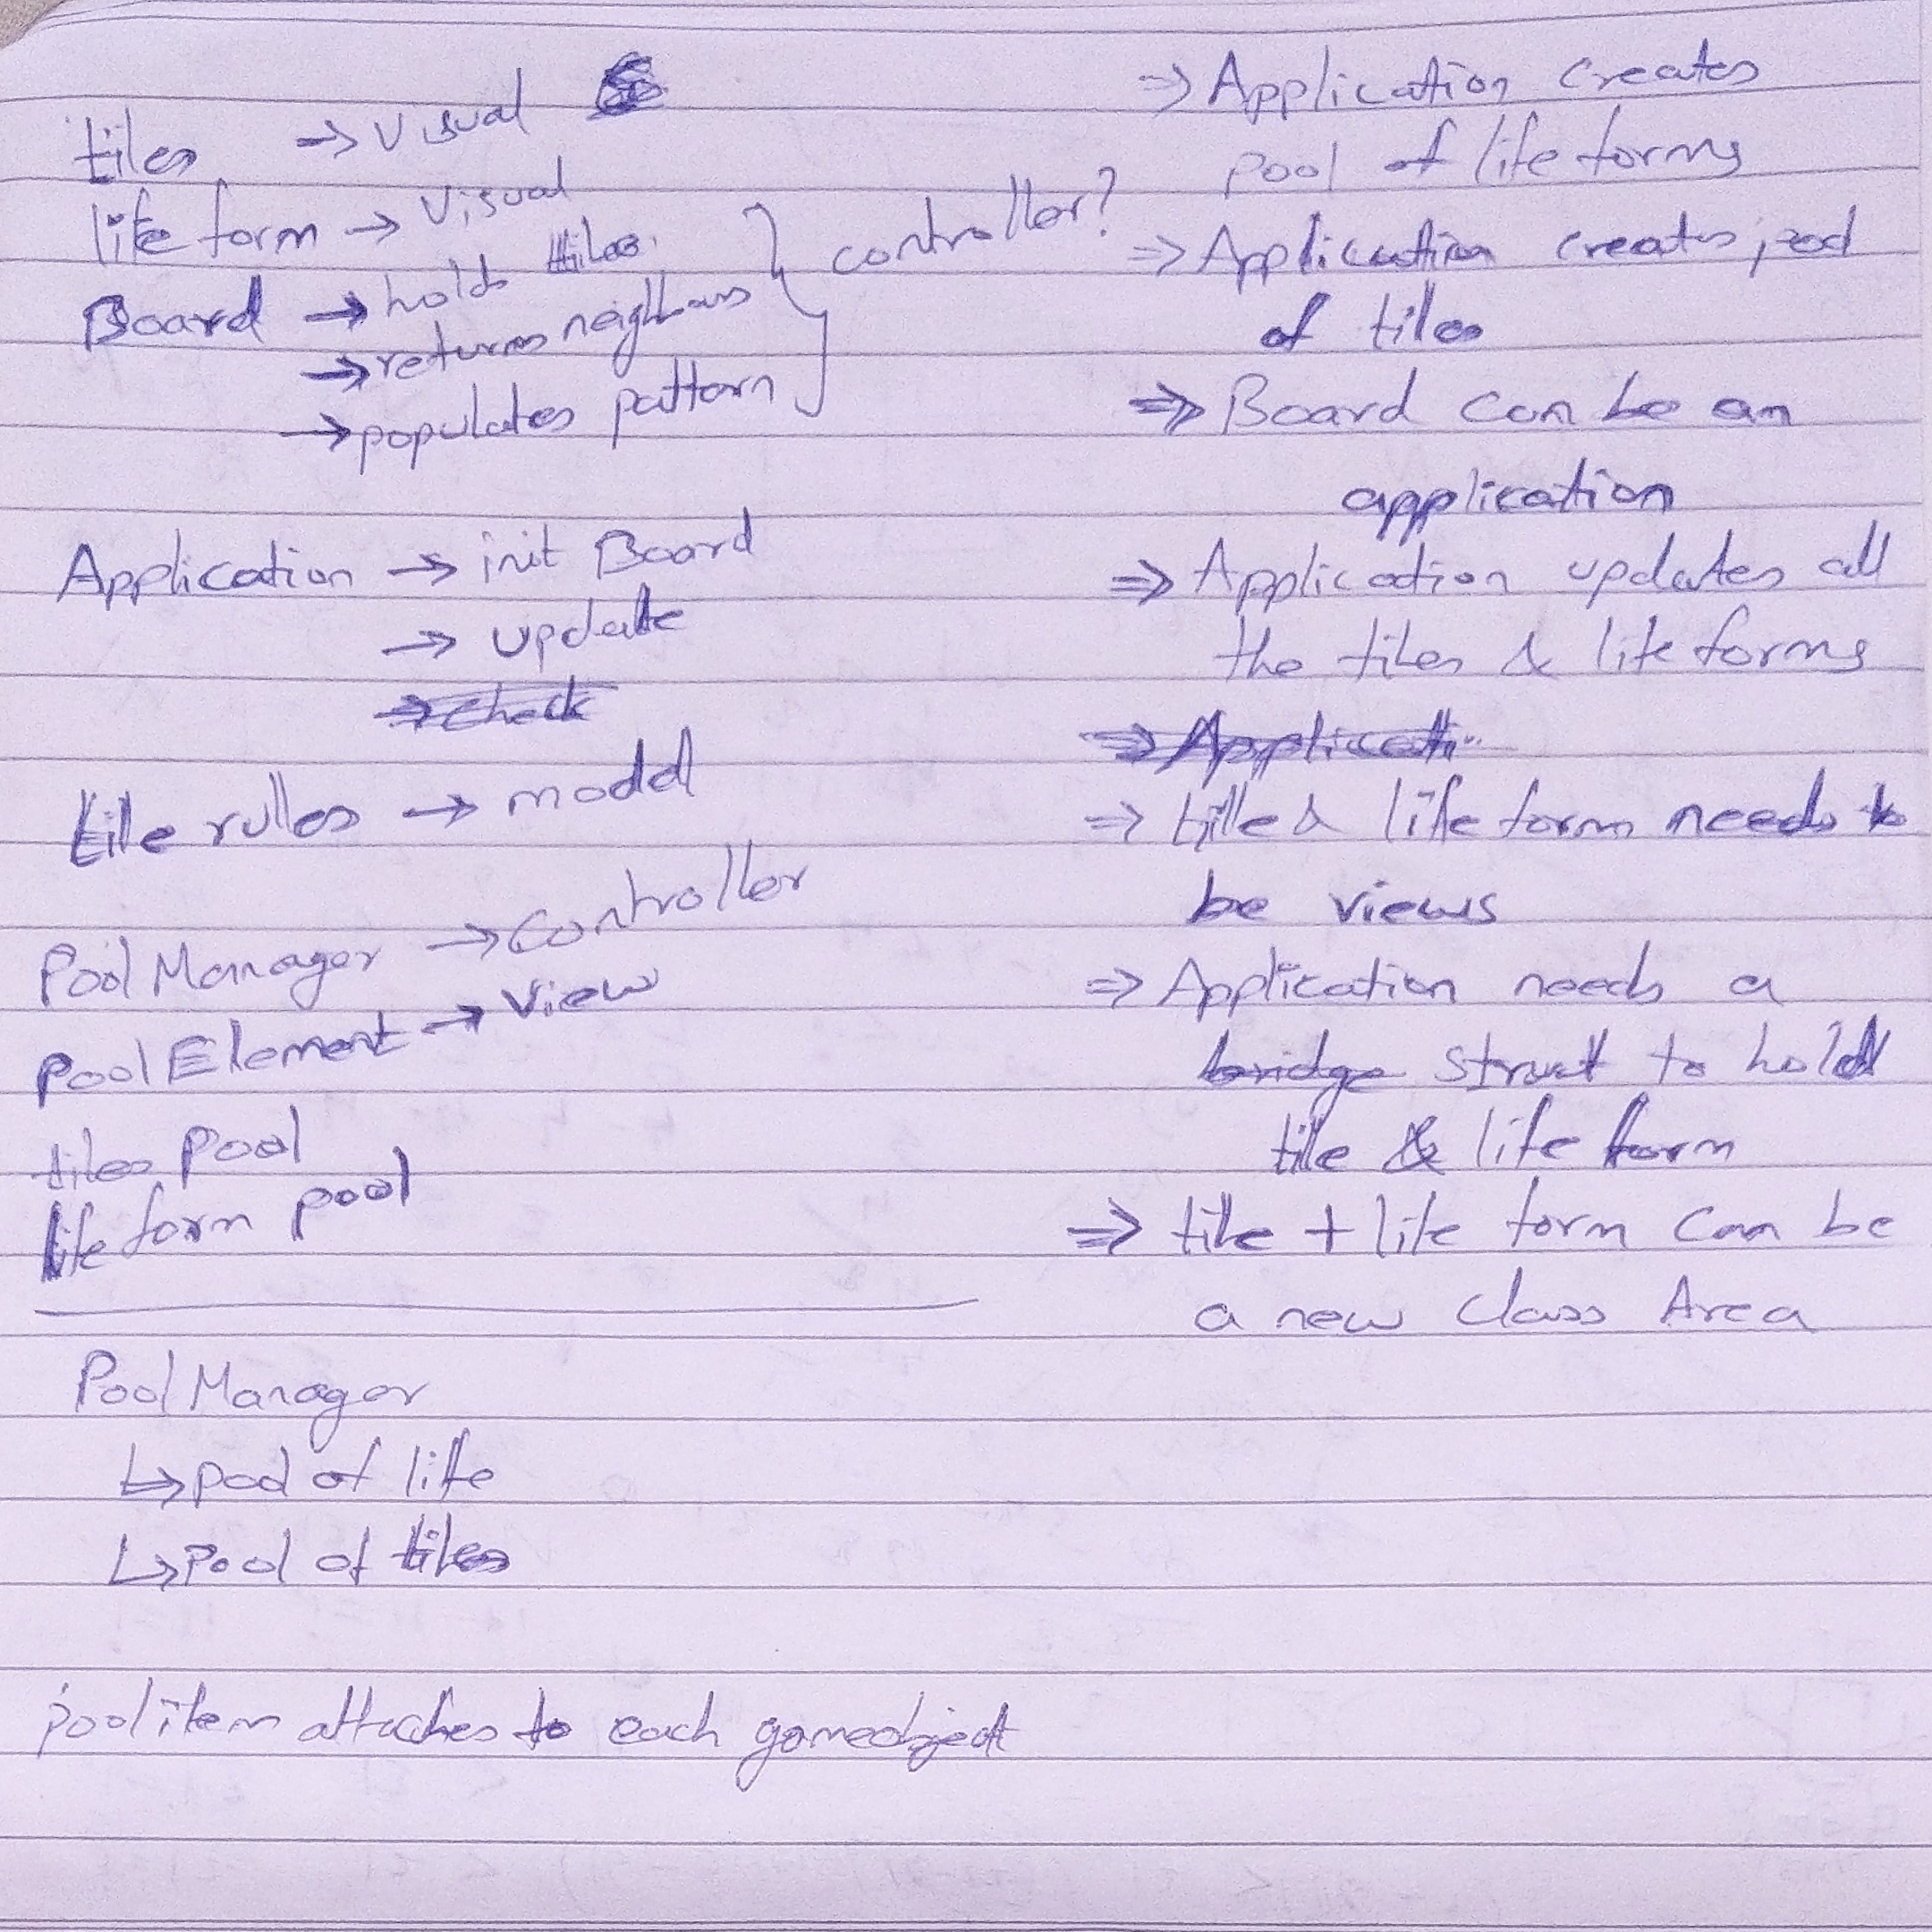 tiles → visual
life form → visual
Board → holds tiles
→ returns neighbours
→ populates pattern
} controller?
Application → init Board
→ update
→ check
tile rules → model
Pool Manager → controller
Pool Element → view
tiles pool
life form pool
Pool Manager
↳ pool of life
↳ pool of tiles
pool item attaches to each gameobject
⇒ Application creates
pool of life forms
⇒ Application creates pool
of tiles
⇒ Board can be an
application
⇒ Application updates all
the tiles & life forms
⇒ Applicati
⇒ tile & life form needs to
be views
⇒ Application needs a
bridge struct to hold
tile & life form
⇒ tile + life form can be
a new class Area